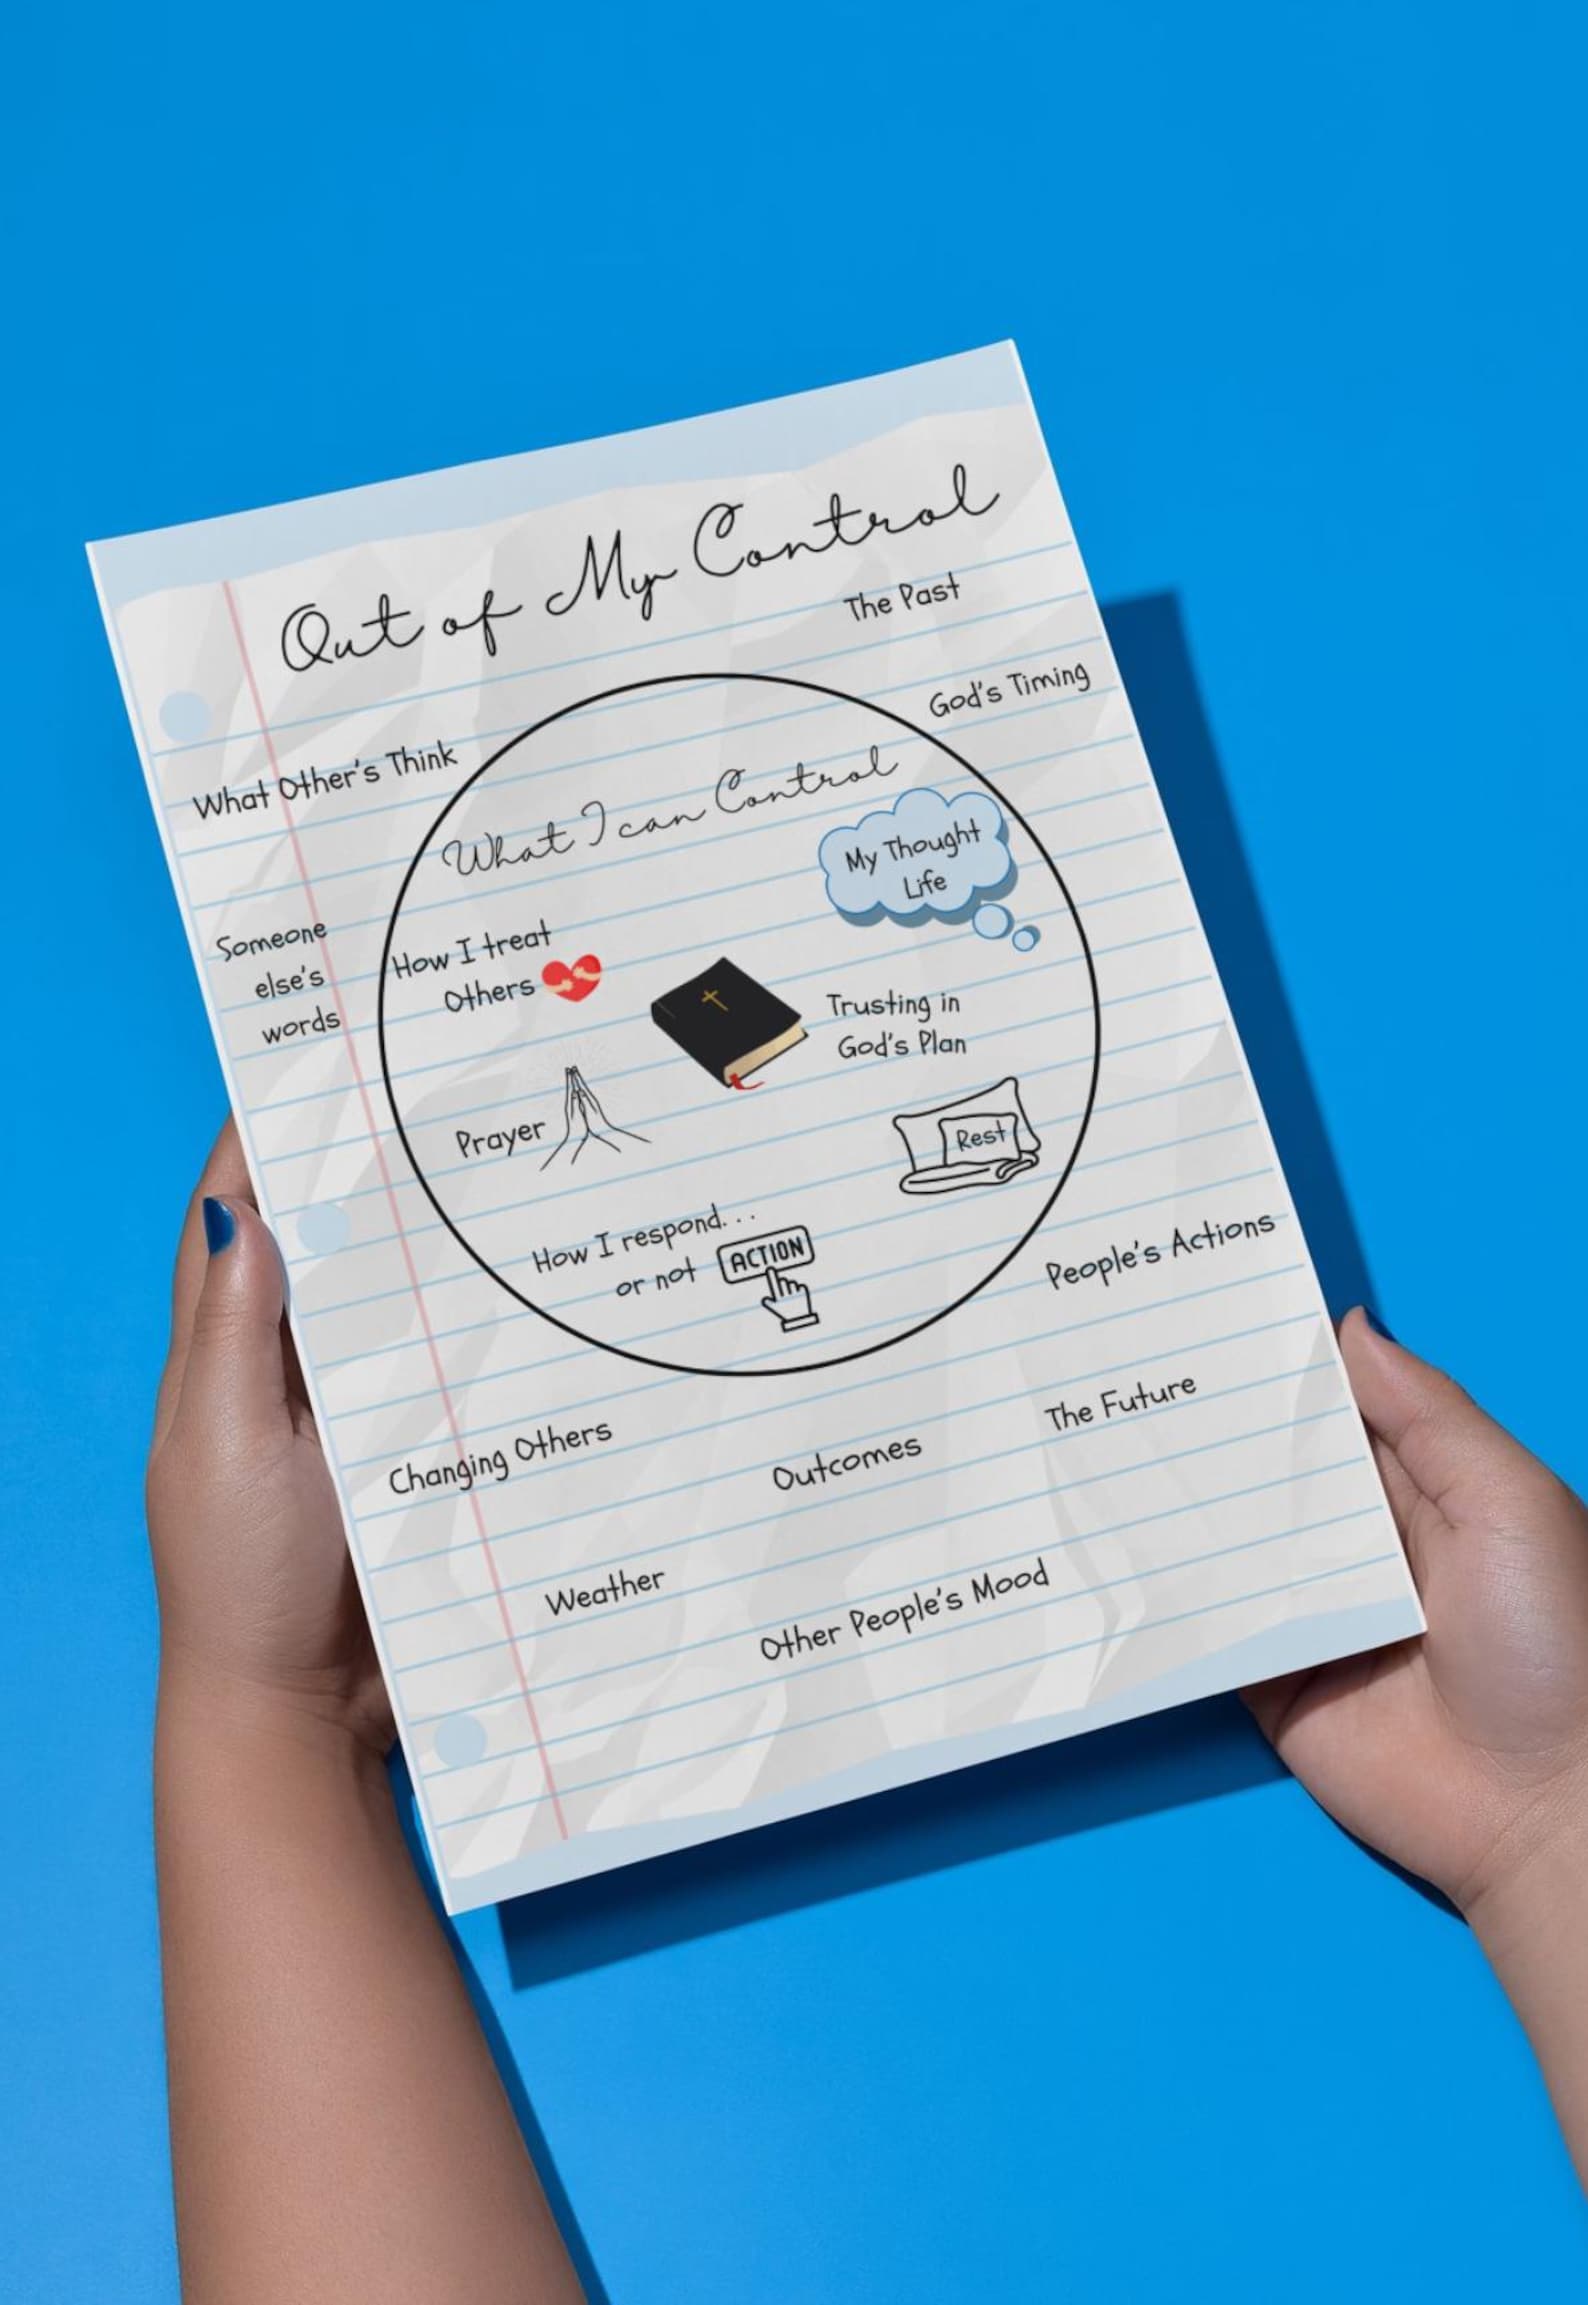 Out of My Control
The Past
God's Timing
What Other's Think
What I can Control
My Thought
Life
Someone
else's
words
How I treat
Others
Trusting in
God's Plan
Prayer
Rest
How I respond...
or not
ACTION
People's Actions
The Future
Changing Others
Outcomes
Weather
Other People's Mood